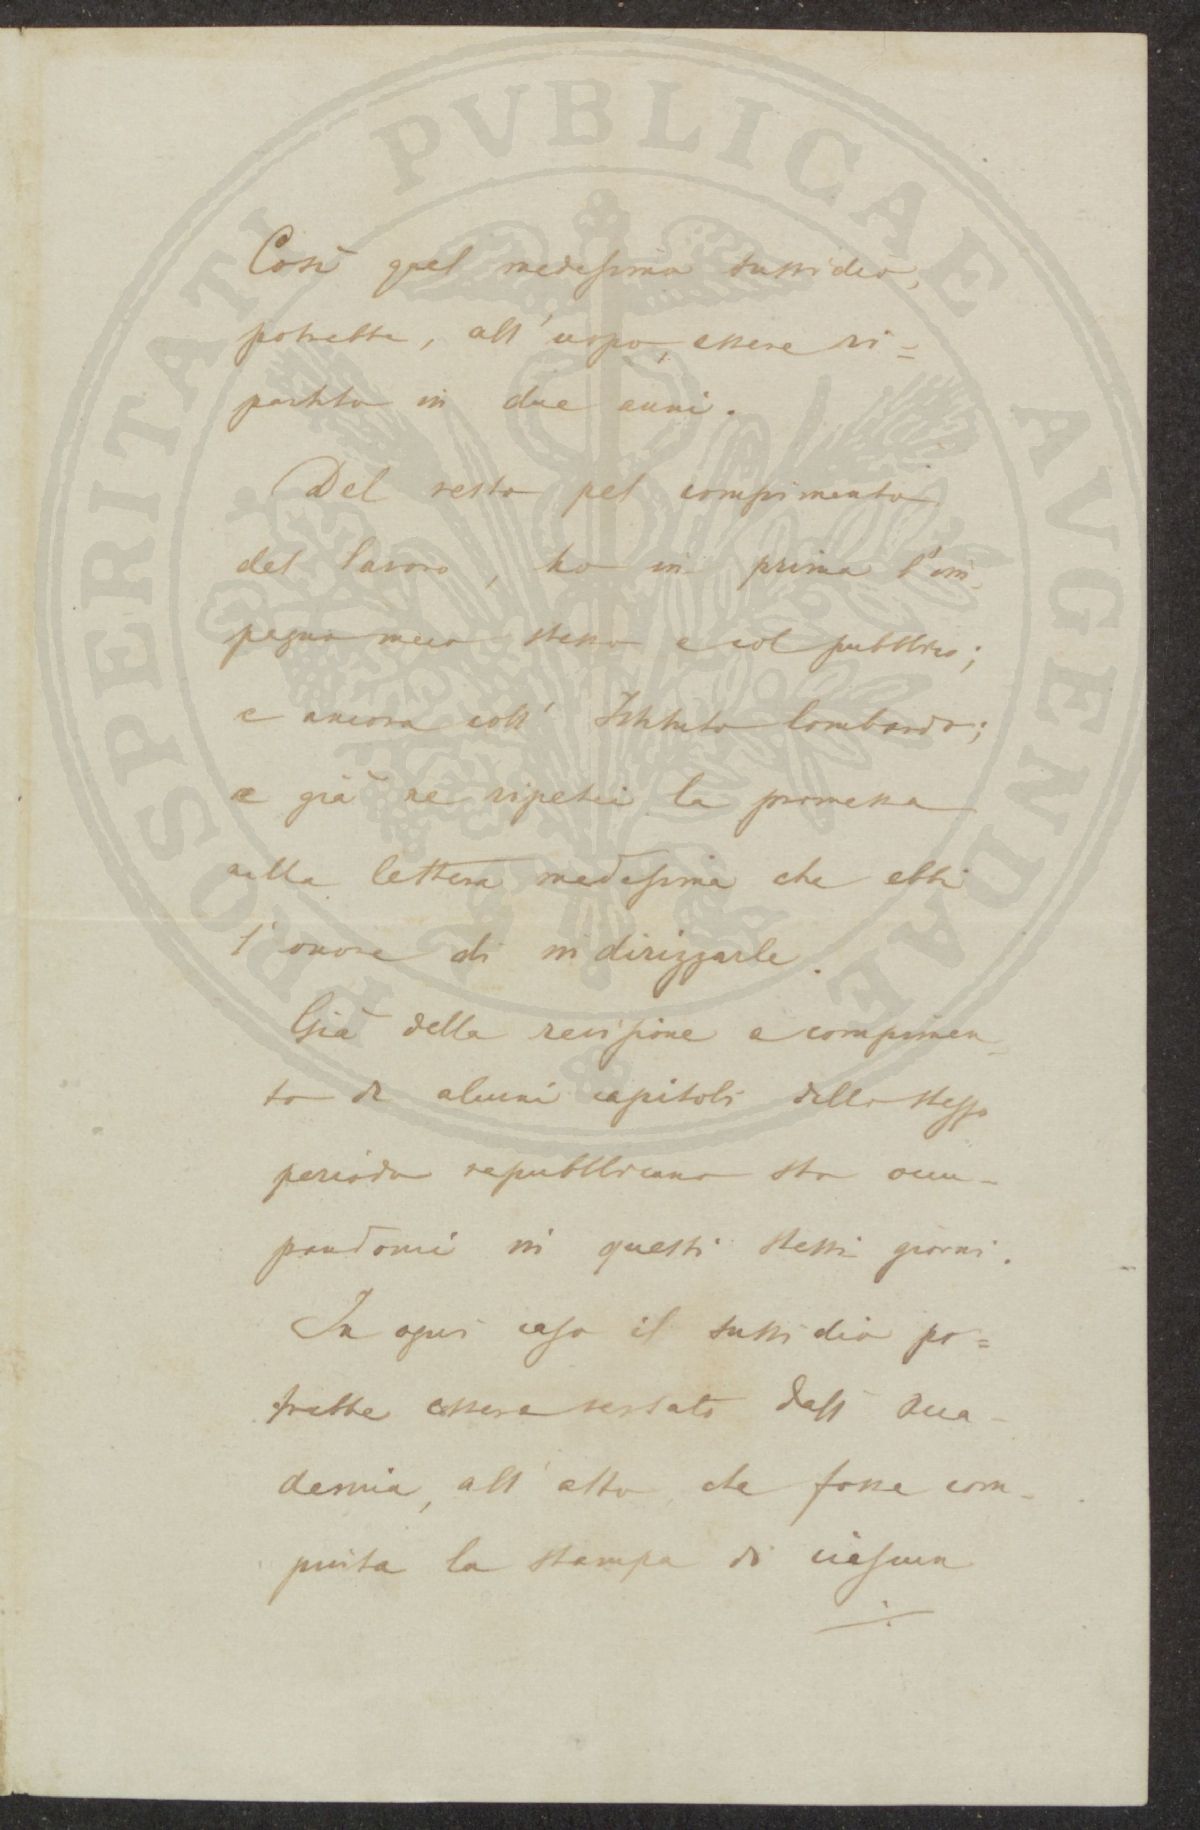 PROSPERITATI PVBLICAE AVGENDAE
Così quel medesimo sussidio,
potrebbe, all'uopo, essere ri=
partito in due anni.
Del resto pel compimento
del lavoro, ho in prima l'im-
pegno meco stesso e col pubblico;
e ancora coll' Istituto lombardo;
e già ne ripetei la promessa
nella lettera medesima che ebbi
l'onore di indirizzarle.
Già della revisione e compimen-
to di alcuni capitoli dello stesso
periodo repubblicano sto occu-
pandomi in questi stessi giorni.
In ogni caso il sussidio po=
trebbe essere versato dall' Acca-
demia, all' atto, che fosse com-
piuta la stampa di ciascun
./.